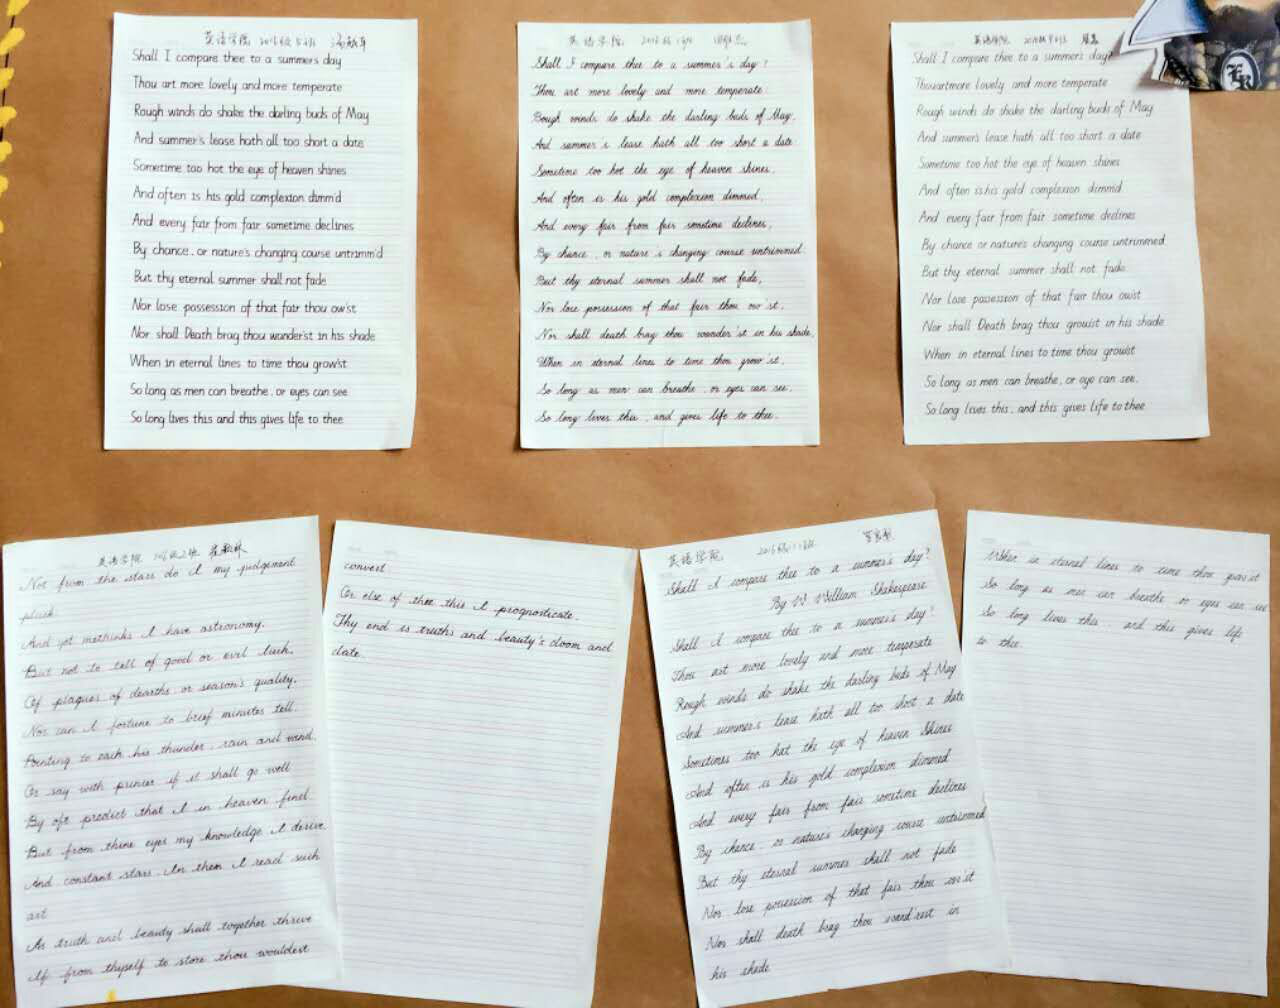 英语学院 2016级5班
Shall I compare thee to a summer's day
Thou art more lovely and more temperate
Rough winds do shake the darling buds of May
And summer's lease hath all too short a date
Sometime too hot the eye of heaven shines
And often is his gold complexion dimm'd
And every fair from fair sometime declines
By chance, or nature's changing course untrimm'd
But thy eternal summer shall not fade
Nor lose possession of that fair thou ow'st
Nor shall Death brag thou wander'st in his shade
When in eternal lines to time thou grow'st
So long as men can breathe, or eyes can see
So long lives this and this gives life to thee
英语学院 2016级
Shall I compare thee to a summer's day?
Thou art more lovely and more temperate:
Rough winds do shake the darling buds of May,
And summer's lease hath all too short a date:
Sometime too hot the eye of heaven shines,
And often is his gold complexion dimmed,
And every fair from fair sometime declines,
By chance, or nature's changing course untrimmed.
But thy eternal summer shall not fade,
Nor lose possession of that fair thou ow'st,
Nor shall death brag thou wander'st in his shade,
When in eternal lines to time thou grow'st,
So long as men can breathe, or eyes can see,
So long lives this, and gives life to thee.
英语学院
Shall I compare thee to a summer's day?
Thou art more lovely and more temperate
Rough winds do shake the darling buds of May
And summer's lease hath all too short a date
Sometime too hot the eye of heaven shines
And often is his gold complexion dimm'd
And every fair from fair sometime declines
By chance or nature's changing course untrimmed
But thy eternal summer shall not fade
Nor lose possession of that fair thou ow'st
Nor shall Death brag thou grow'st in his shade
When in eternal lines to time thou grow'st
So long as men can breathe, or eye can see,
So long lives this, and this gives life to thee
英语学院
Not from the stars do I my judgement
pluck
And yet methinks I have astronomy.
But not to tell of good or evil luck.
Of plagues of dearths or season's quality.
Nor can I fortune to brief minutes tell.
Pointing to each his thunder, rain and wind.
Or say with princes if it shall go well
By oft predict that I in heaven find.
But from thine eyes my knowledge I derive
And constant stars. In them I read such
art
As truth and beauty shall together thrive
If from thyself to store thou wouldest
convert
Or else of thee this I prognosticate.
Thy end is truths and beauty's doom and
date
英语学院 2016级
Shall I compare thee to a summer's day?
By W William Shakespeare
Shall I compare thee to a summer's day?
Thou art more lovely and more temperate
Rough winds do shake the darling buds of May
And summer's lease hath all too short a date
Sometimes too hot the eye of heaven Shines
And often is his gold complexion dimmed
And every fair from fair sometime declines
By chance, or nature's changing course untrimmed
But thy eternal summer shall not fade
Nor lose possession of that fair thou ow'st
Nor shall death brag thou wand'rest in
his shade
When in eternal lines to time thou grow'st
So long as men can breathe or eyes can see
So long lives this, and this gives life
to thee.